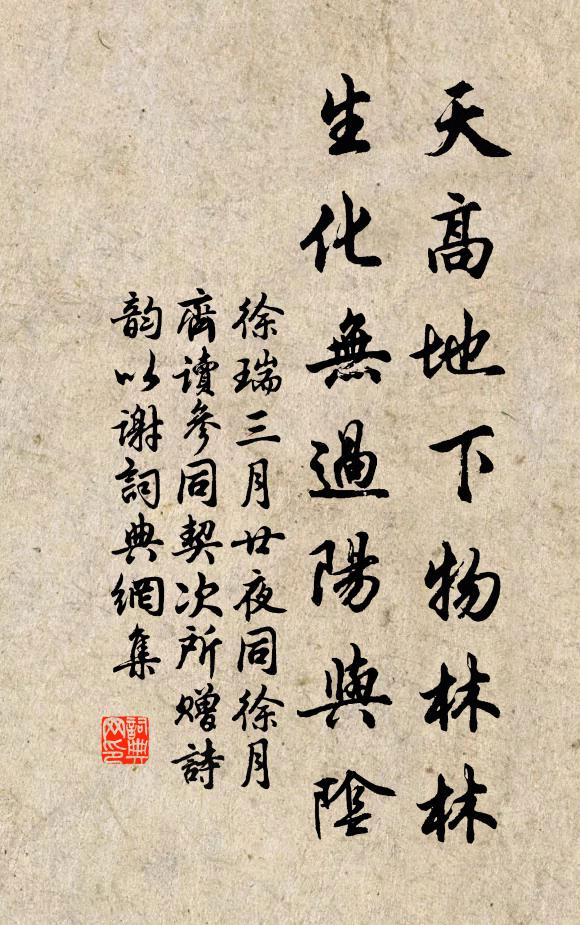 天高地下物林林
生化無過陽與陰
徐瑞三月廿夜同徐月
齋讀參同契次所贈詩
韵以謝詞典網集
詞典
网印